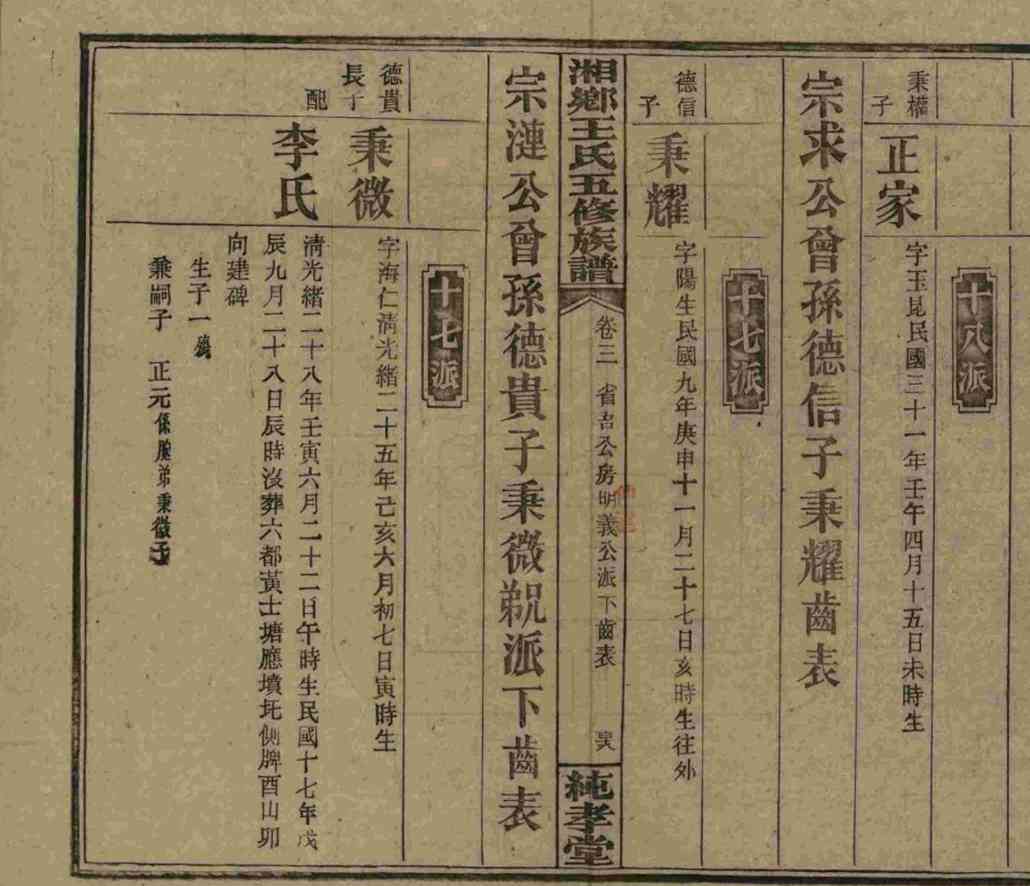 十八派
秉權
子
正家
字玉昆民國三十一年壬午四月十五日未時生
宗求公曾孫德信子秉耀齒表
十七派
德信
子
秉耀
字陽生民國九年庚申十一月二十七日亥時生往外
湘鄉王氏五修族譜
卷三 省吉公房明義公派下齒表
純孝堂
宗漣公曾孫德貴子秉微派下齒表
十七派
德貴
長子
秉微
字海仁清光緒二十五年己亥六月初七日寅時生
配
李氏
清光緒二十八年壬寅六月二十二日午時生民國十七年戊
辰九月二十八日辰時沒葬六都黃土塘應墳圫側牌酉山卯
向建碑
生子一
兼嗣子 正元係胞弟秉徵子